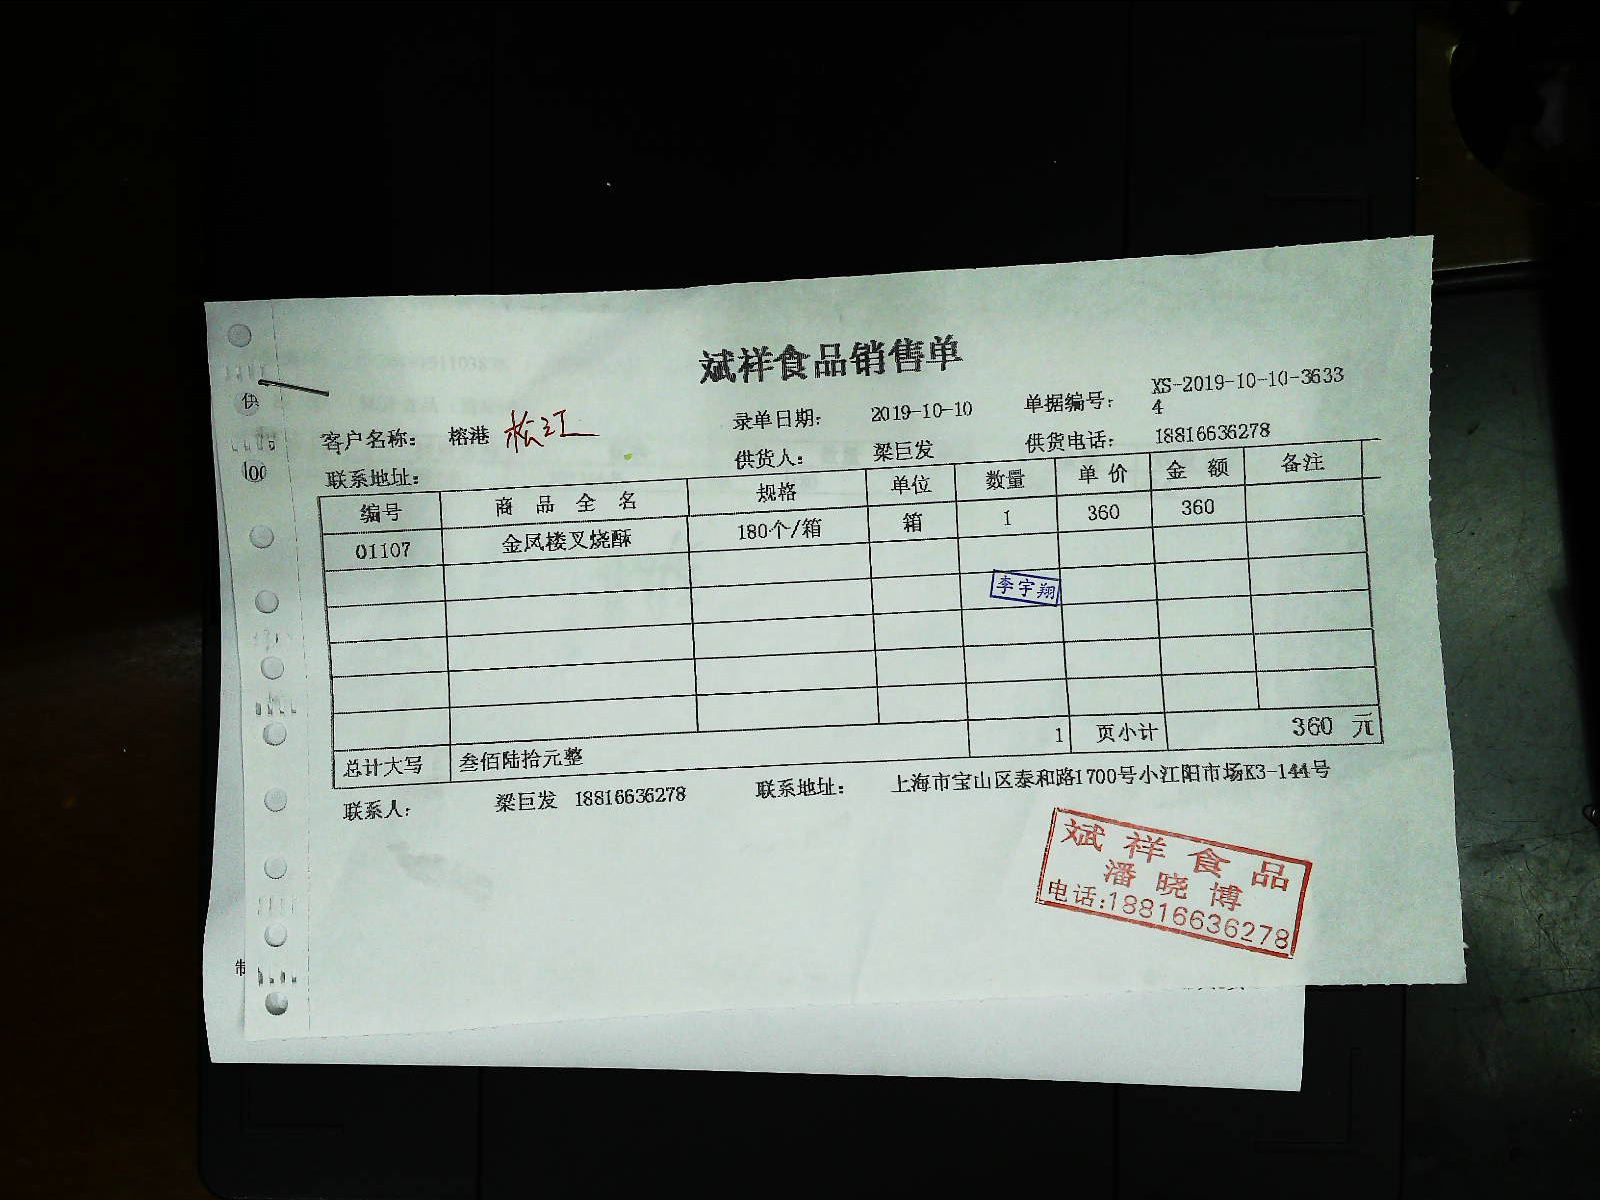 斌祥食品销售单
客户名称： 榕港 松江 录单日期： 2019-10-10 单据编号： XS-2019-10-10-3633
4
联系地址： 供货人： 梁巨发 供货电话： 18816636278
编号 商品全名 规格 单位 数量 单价 金额 备注
01107 金凤楼叉烧酥 180个/箱 箱 1 360 360
李宇翔
总计大写 叁佰陆拾元整 1 页小计 360 元
联系人： 梁巨发 18816636278 联系地址： 上海市宝山区泰和路1700号小江阳市场K3-144号
斌祥食品
潘晓博
电话:18816636278
供
100
制